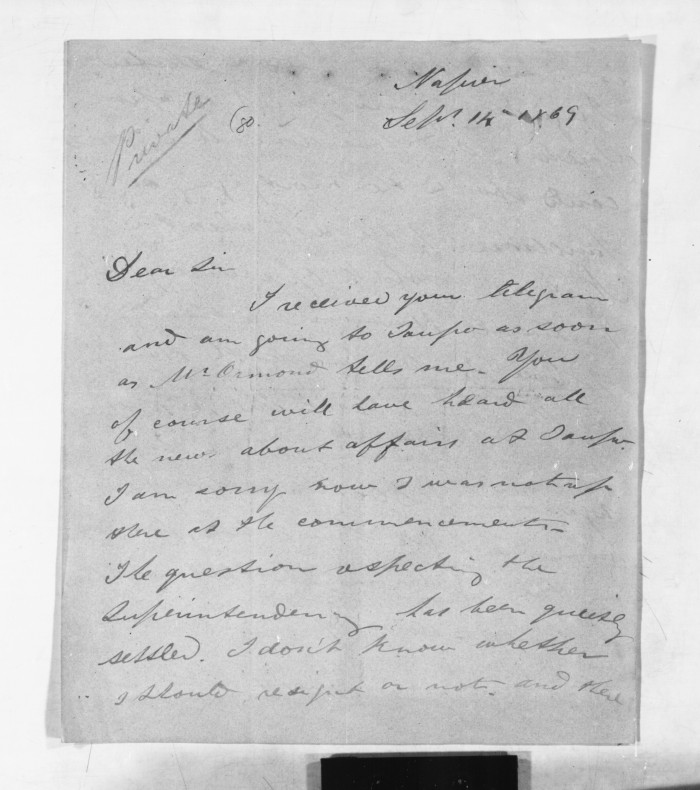 Private
(80.
Napier
Sept. 14 1869
Dear Sir
I received your telegram
and am going to Taupo as soon
as Mr. Ormond tells me. You
of course will have heard all
the news about affairs at Taupo.
I am sorry now I was not up
there at the commencement.
The question respecting the
Superintendency has been quietly
settled. I don't know whether
I should resign it or not. and there